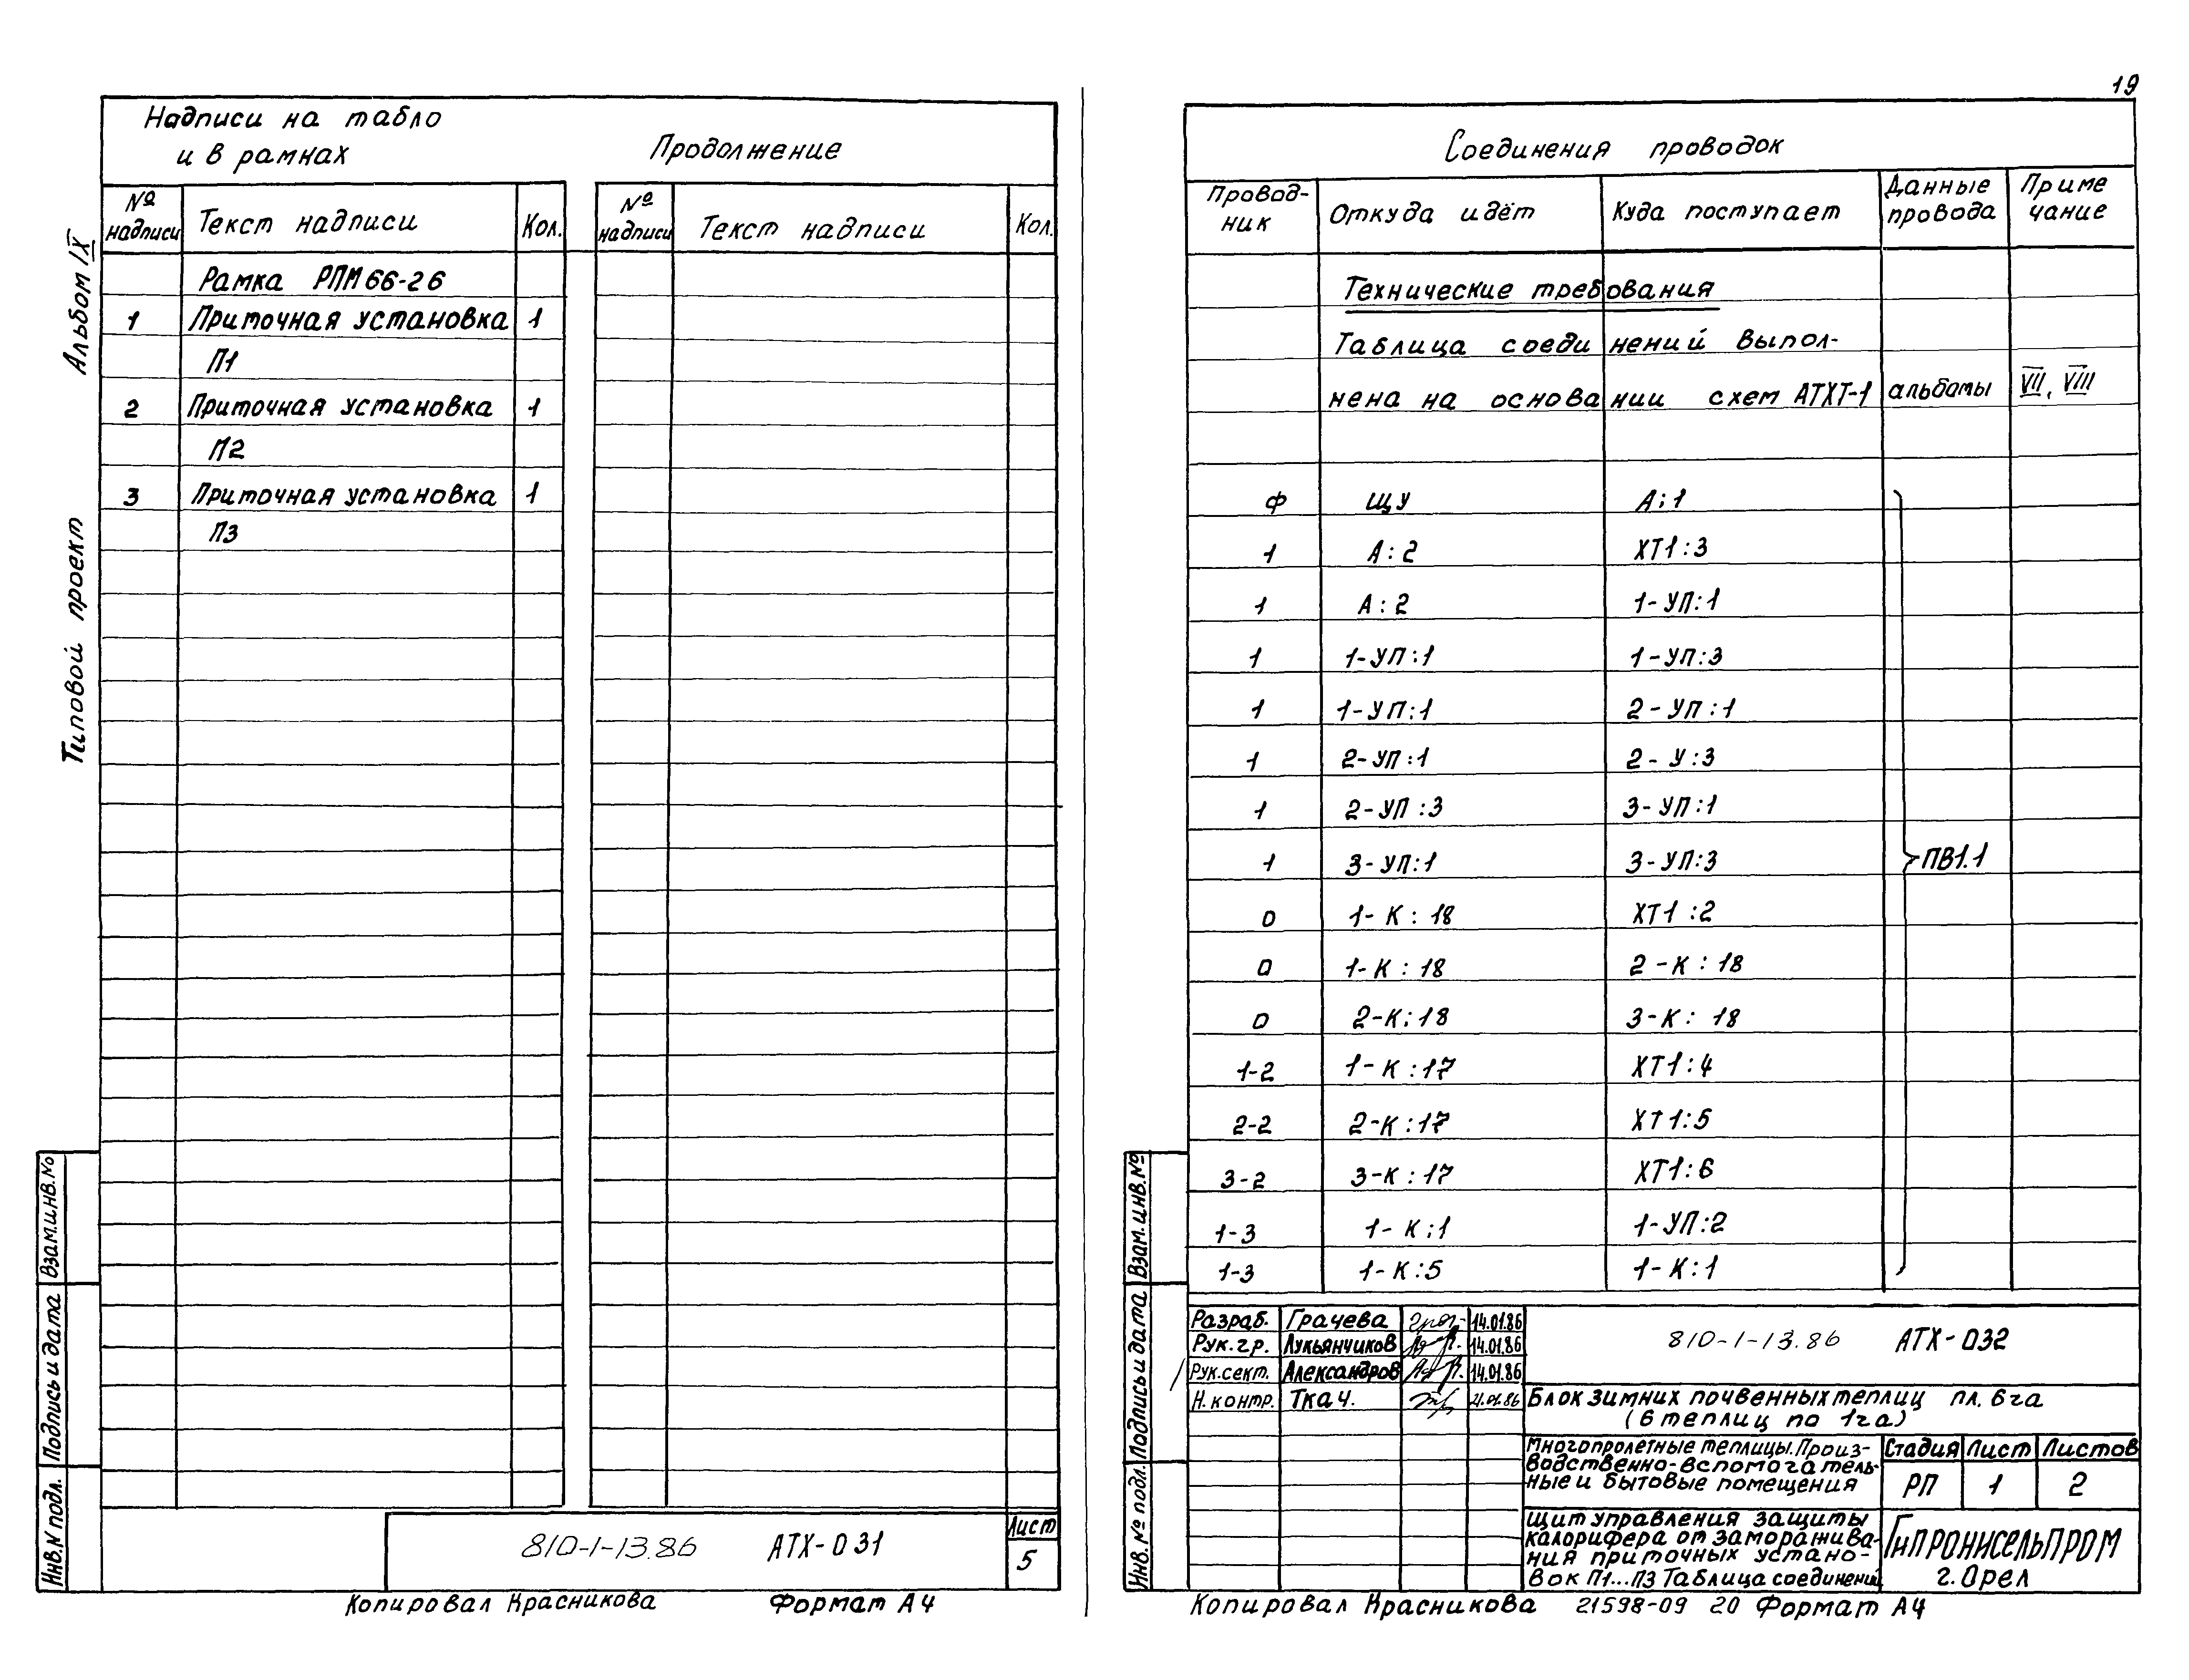 19
Альбом IX
Типовой проект
Надписи на табло
и в рамках
Продолжение
№ надписи Текст надписи Кол. № надписи Текст надписи Кол.
Рамка РПМ 66-26
1 Приточная установка 1
П1
2 Приточная установка 1
П2
3 Приточная установка 1
П3
Взам.инв.№
Подпись и дата
Инв.N подл.
810-1-13.86 АТХ-031
Лист
5
Копировал Красникова Формат А4
Соединения проводок
Провод-
ник
Откуда идёт
Куда поступает
Данные
провода
Приме
чание
Технические требования
Таблица соединений выпол-
нена на основании схем АТХТ-1 альбомы VII, VIII
Ф ЩУ А:1
1 А:2 ХТ1:3
1 А:2 1-УП:1
1 1-УП:1 1-УП:3
1 1-УП:1 2-УП:1
1 2-УП:1 2-У:3
1 2-УП:3 3-УП:1
1 3-УП:1 3-УП:3 ПВ1.1
0 1-К:18 ХТ1:2
0 1-К:18 2-К:18
0 2-К:18 3-К:18
1-2 1-К:17 ХТ1:4
2-2 2-К:17 ХТ1:5
3-2 3-К:17 ХТ1:6
1-3 1-К:1 1-УП:2
1-3 1-К:5 1-К:1
Взам.инв.№
Подпись и дата
Инв.№ подл.
Разраб. Грачева 14.01.86
Рук.гр. Лукьянчиков 14.01.86
Рук.сект. Александров 14.01.86
Н.контр. Ткач. 21.01.86
810-1-13.86 АТХ-032
Блок зимних почвенных теплиц пл. 6га
(6 теплиц по 1га)
Многопролетные теплицы. Произ-
водственно-вспомогатель-
ные и бытовые помещения
Стадия Лист Листов
РП 1 2
Щит управления защиты
калорифера от заморажива-
ния приточных устано-
вок П1...П3 Таблица соединений
ГИПРОНИСЕЛЬПРОМ
г. Орел
Копировал Красникова 21598-09 20 Формат А4